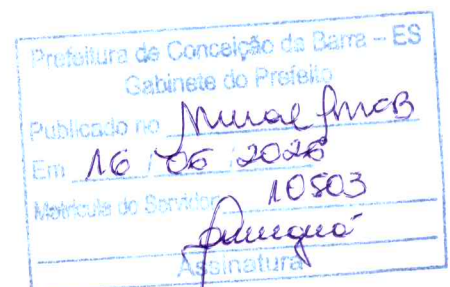 Prefeitura de Conceição da Barra – ES
Gabinete do Prefeito
Publicado no Mural PMCB
Em 16 / 06 / 2026
Matrícula do Servidor 10503
Assinatura